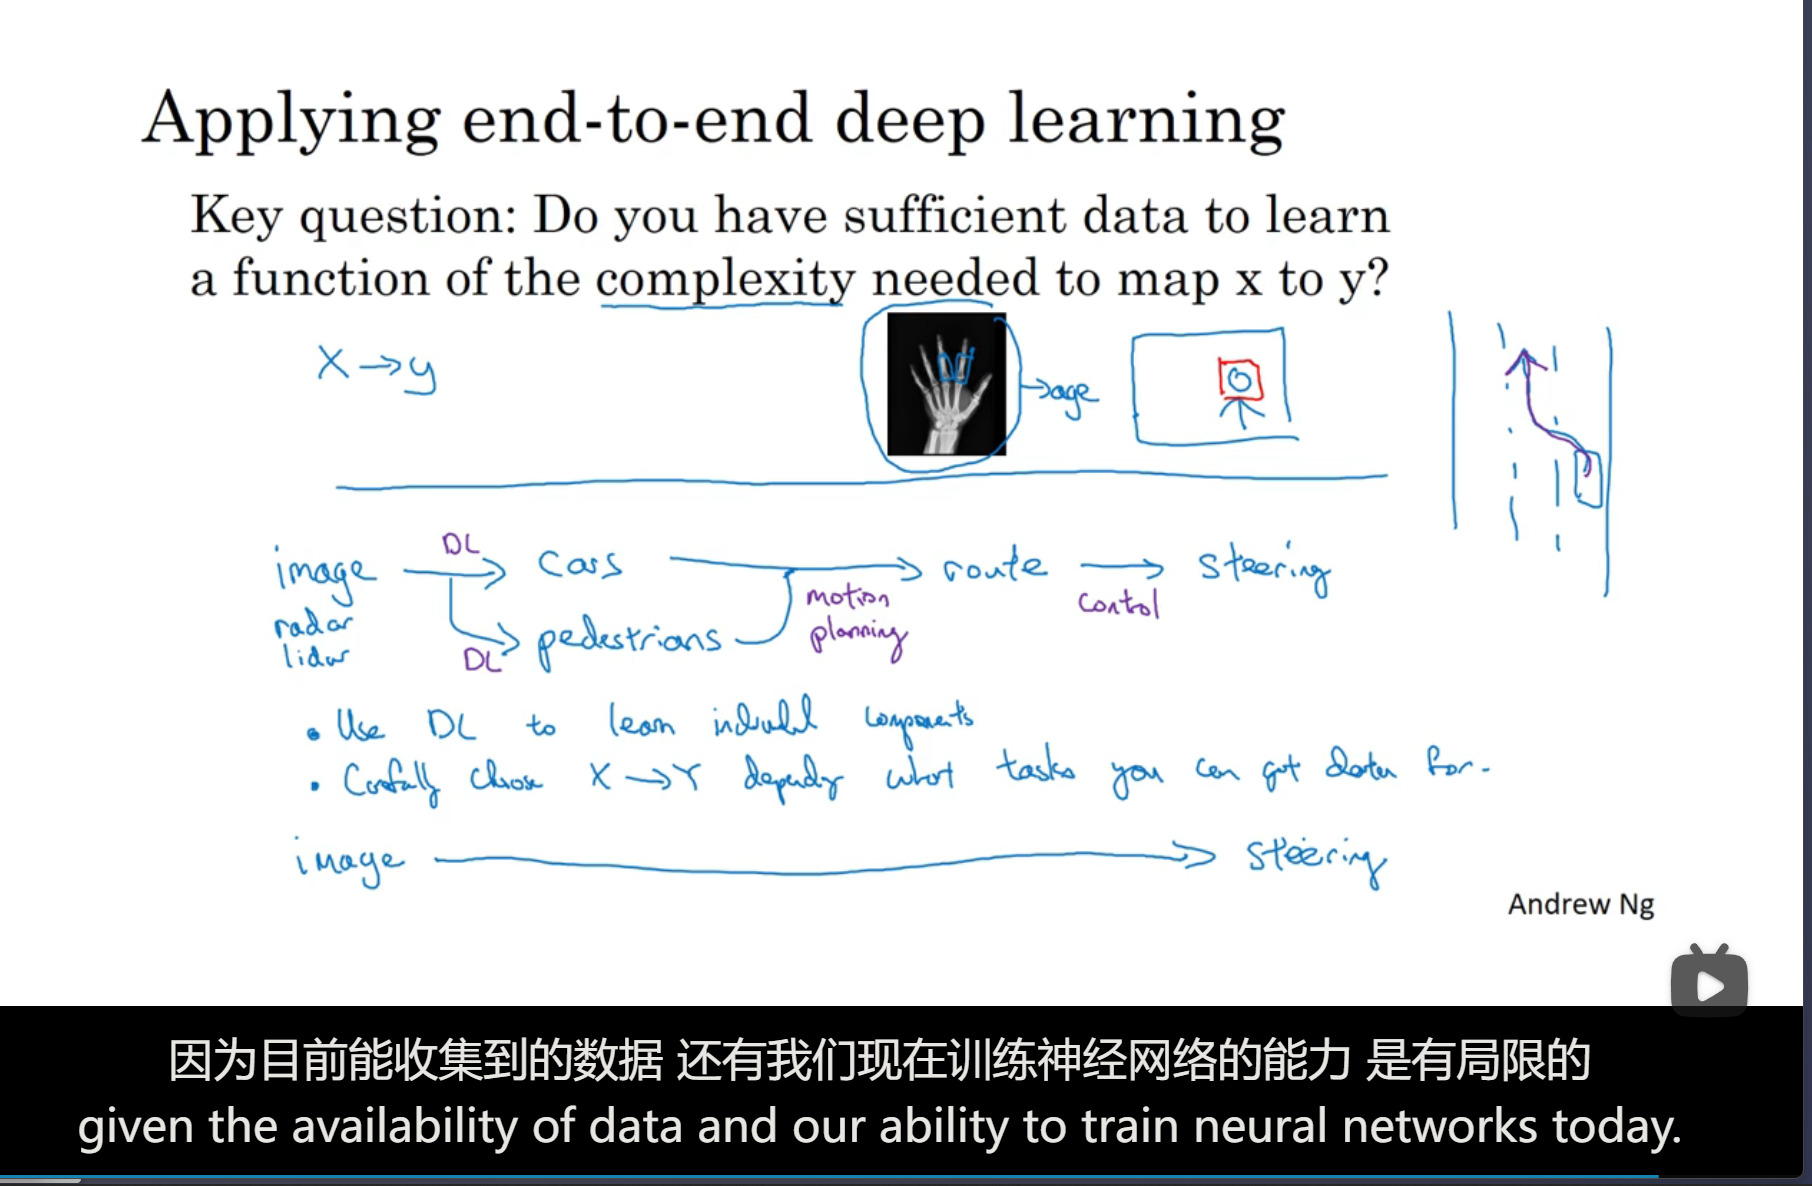 Applying end-to-end deep learning
Key question: Do you have sufficient data to learn
a function of the complexity needed to map x to y?
X → y
→ age
image → cars → route → steering
DL
radar
lidar
DL
pedestrians
motion
planning
control
• Use DL to learn individual components
• Carefully choose X → Y depending what tasks you can get data for.
image → steering
Andrew Ng
因为目前能收集到的数据 还有我们现在训练神经网络的能力 是有局限的
given the availability of data and our ability to train neural networks today.